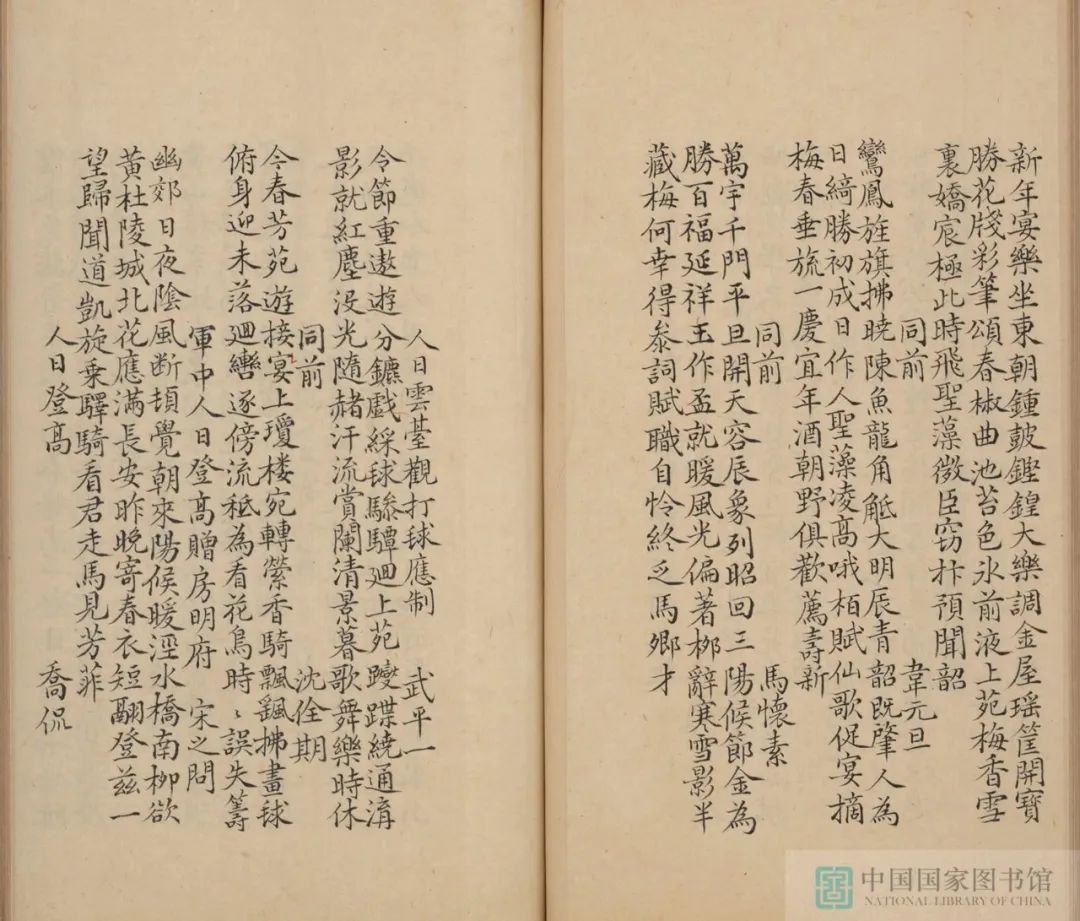 新年宴樂坐東朝鍾皷鏗鍠大樂調金屋瑶筐開寳
勝花牋彩筆頌春椒曲池苔色氷前液上苑梅香雪
裏嬌宸極此時飛聖藻微臣窃抃預聞韶
同前 韋元旦
鸞鳳旌旗拂曉陳魚龍角觝大明辰青韶既肇人為
日綺勝初成日作人聖藻凌高哦栢賦仙歌促宴摘
梅春垂旒一慶宜年酒朝野俱歡薦壽新
同前 馬懷素
萬宇千門平旦開天容辰象列昭回三陽候節金為
勝百福延祥玉作盃就暖風光偏著栁辭寒雪影半
藏梅何幸得叅詞賦職自怜終乏馬郷才
人日雲臺觀打球應制 武平一
令節重遨遊分鑣戲綵球驂驔廻上苑蹀躞繞通溝
影就紅塵没光隨赭汗流賞闌清景暮歌舞樂時休
同前 沈佺期
今春芳苑遊接宴上瓊楼宛轉縈香騎飄颻拂畫球
俯身迎未落廻轡逐傍流秪為看花鳥時〻誤失籌
軍中人日登高贈房明府 宋之問
幽郊日夜陰風断頓覺朝來陽候暖涇水橋南栁欲
黄杜陵城北花應滿長安昨晚寄春衣短翮登兹一
望歸聞道凱旋乗驛騎看君走馬見芳菲
人日登高 喬侃
中国国家图书馆
NATIONAL LIBRARY OF CHINA